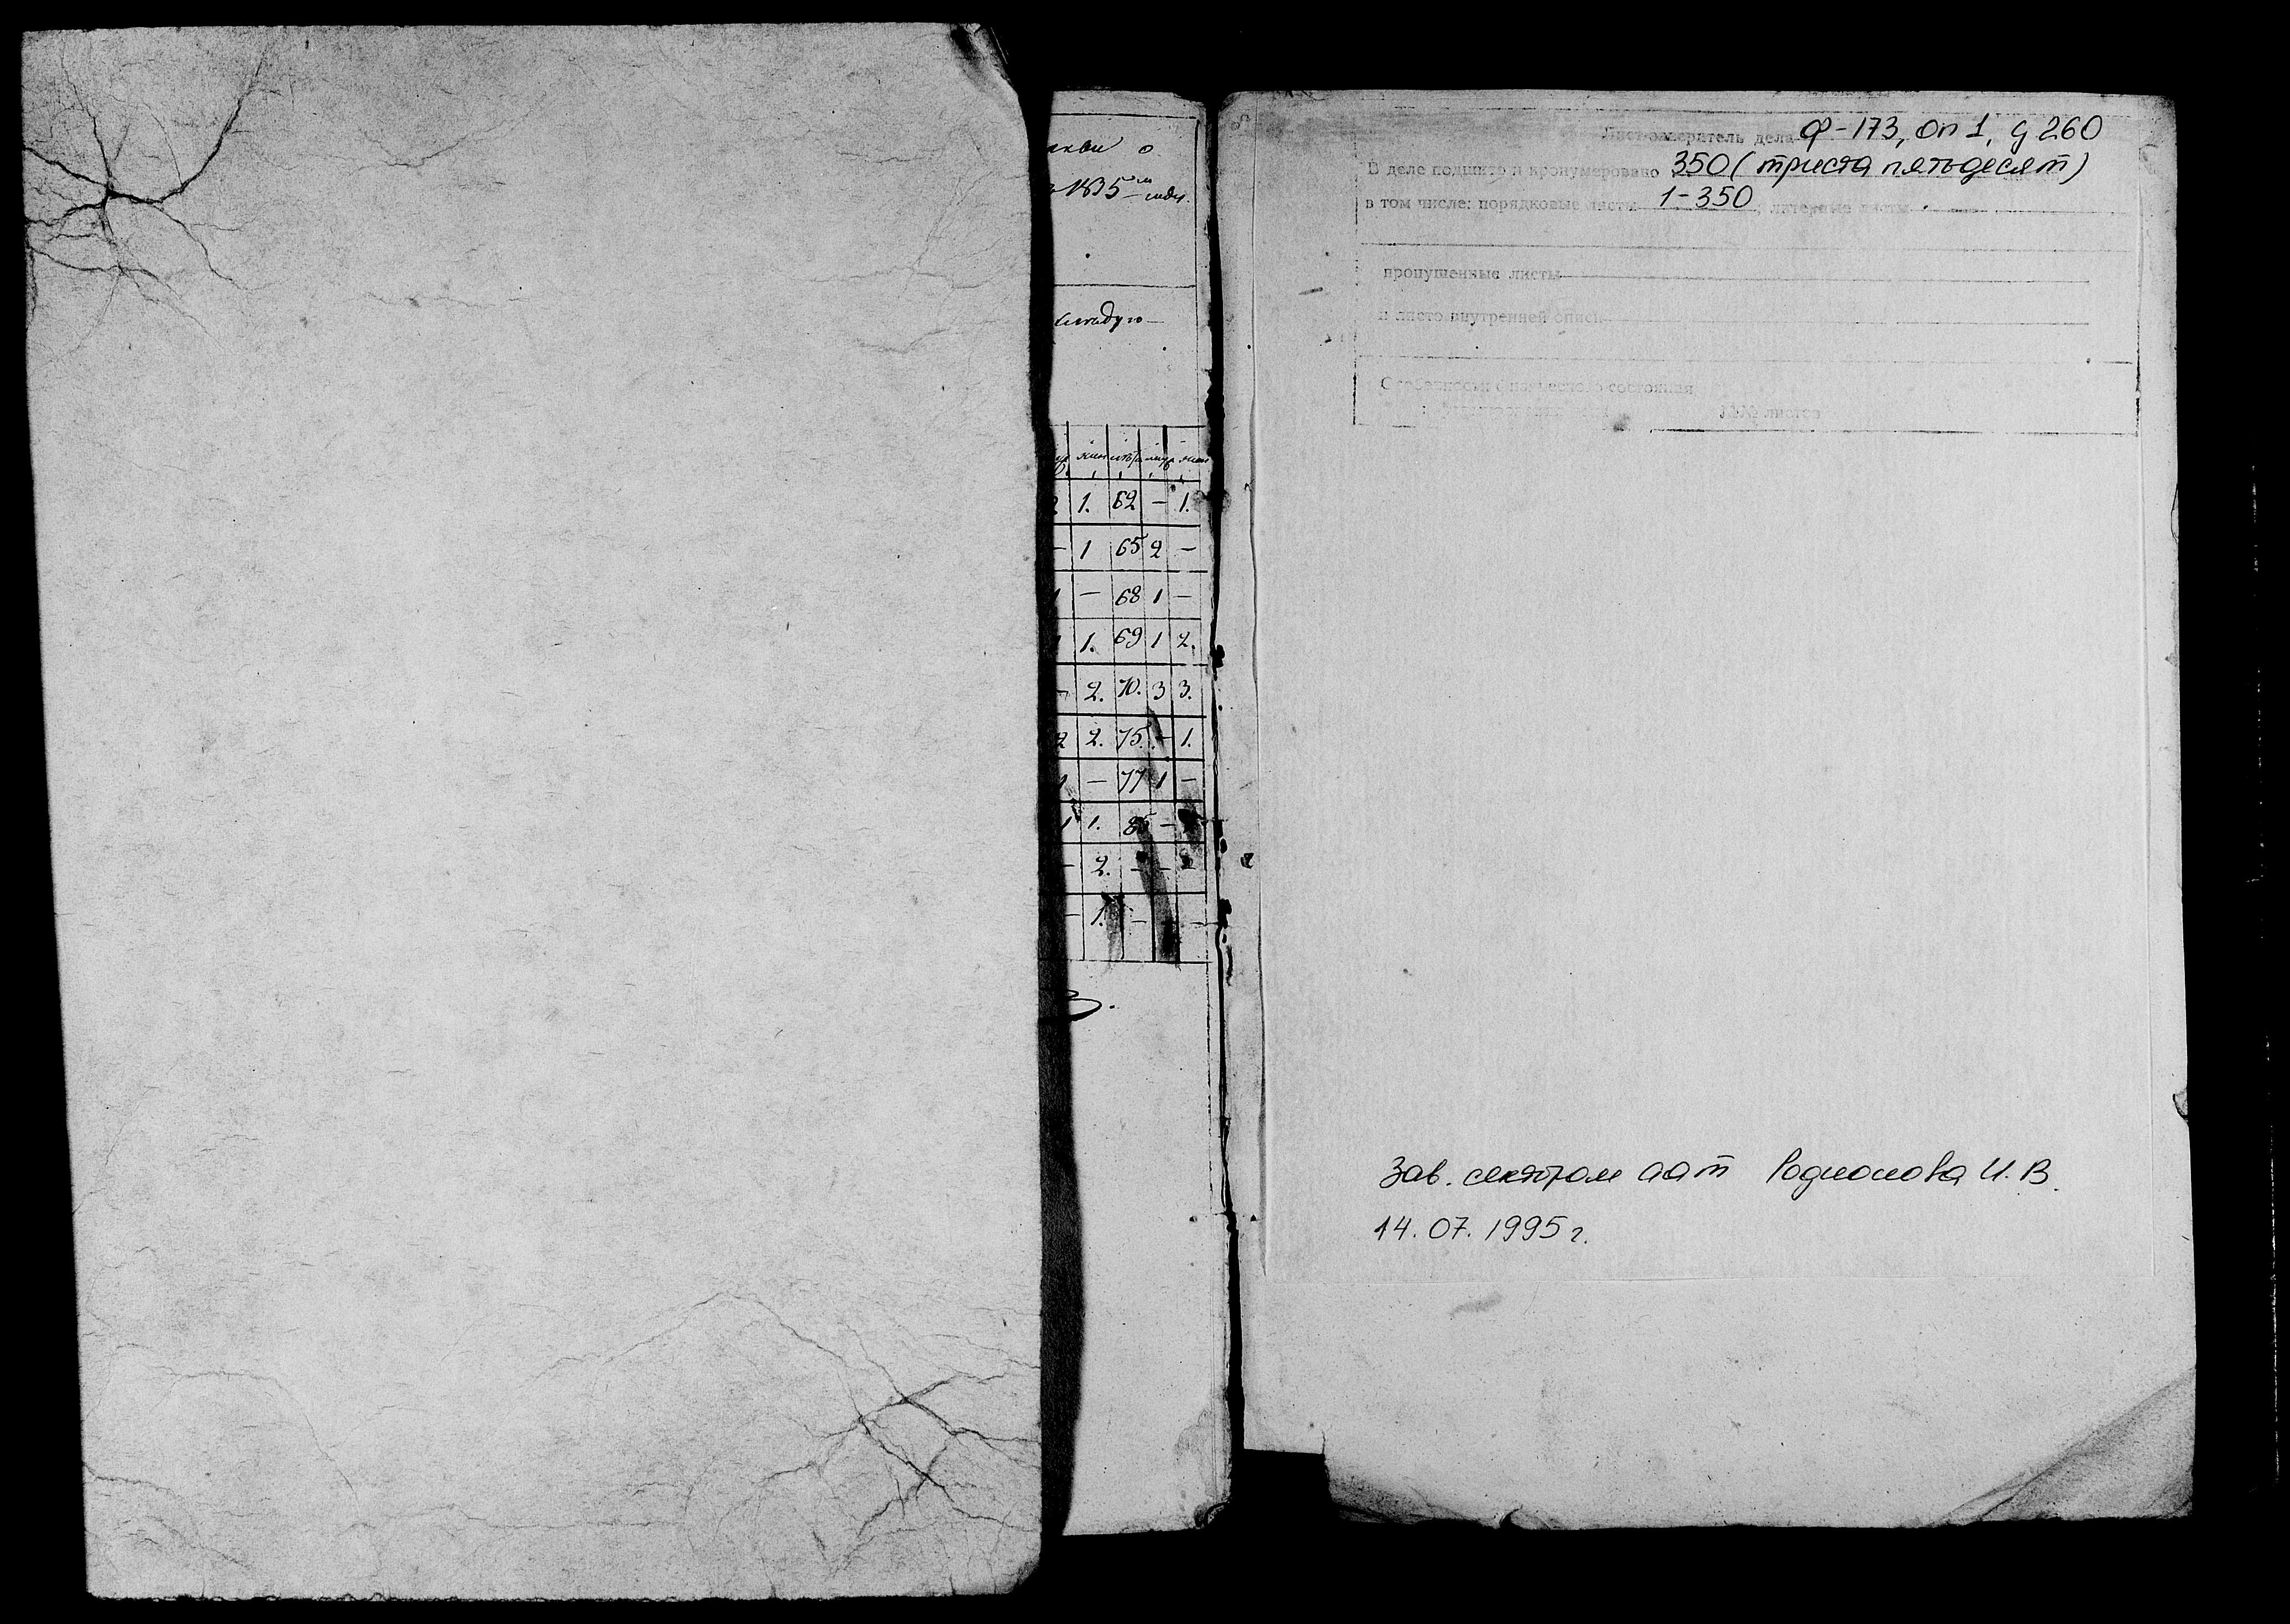 о
1835 года.
жен лета муж жен
1. 62 — 1.
— 1 65 2 —
1 — 68 1 —
1 1. 69 1 2.
— 2. 70. 3 3.
2 2. 75. — 1.
1 — 77 1 —
1 1. 85 —
— 2. — —
— 1. —
Лист-заверитель дела Ф-173, оп 1, д 260
В деле подшито и пронумеровано 350 (триста пятьдесят)
в том числе: порядковые листы 1-350, литерные листы
пропущенные листы
листо внутренней описи
Особенности физического состояния
№№ листов
Зав. сектором ААТ Родионова И. В.
14. 07. 1995 г.